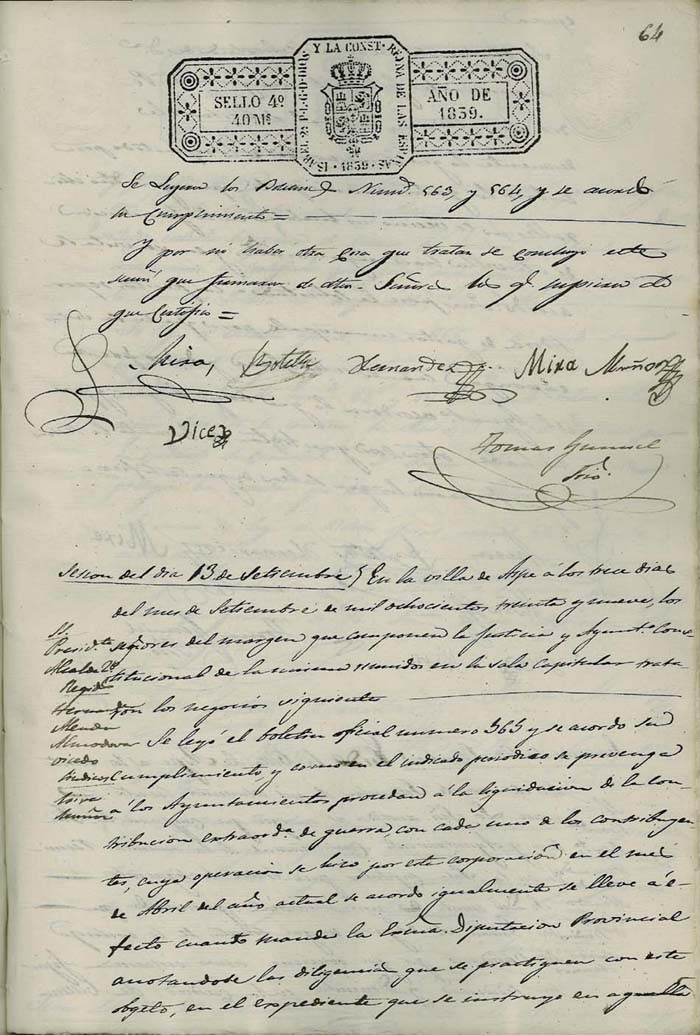 64
ISABEL 2ª P. L. G. D. DIOS Y LA CONST. REYNA DE LAS ESPAÑAS
· 1839 ·
SELLO 4º
40 Mˢ
AÑO DE
1839.
Se leyeron los Num.ˢ 563 y 564, y se acordó
su Cumplimiento =
Y por no haber otra Cosa que tratar se concluyó este
que firmaron de otros Señores los q.ᵉ supieron de
que Certifico =
Mira, Botella Hernandez Mira Muñoz
Vicedo
Tomas
Srio.
Sesion del dia 13 de Setiembre } En la villa de Aspe á los trece dias
del mes de Setiembre de mil ochocientos treinta y nueve, los
señores del margen que componen la Justicia y Ayunt.º Cons-
titucional de la misma reunidos en la sala Capitular trata
ron los negocios siguientes
SS.
Presid.te
Alcalde 2º
Regid.
Hernand.
Almodovar
Vicedo
Sindicos
Mira
Muñoz
Se leyó el boletin oficial numero 363 y se acordo su
cumplimiento, y como en el indicado periodico se prevenga
á los Ayuntamientos procedan á la liquidacion de la con-
tribucion extraord.ª de guerra, con cada uno de los contribuyen
tes, cuya operacion se hizo por esta corporacion en el mes
de Abril del año actual se acordo igualmente se lleve á e-
fecto cuanto manda la Exma. Diputacion Provincial
anotandose las diligencias que se practiquen con este
obgeto, en el expediente que se instruyo en aquella